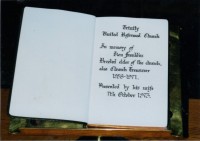 Trinity
United Reformed Church
In memory of
Devoted elder of the church,
also Church Treasurer
Presented by his wife
7th October 1973.